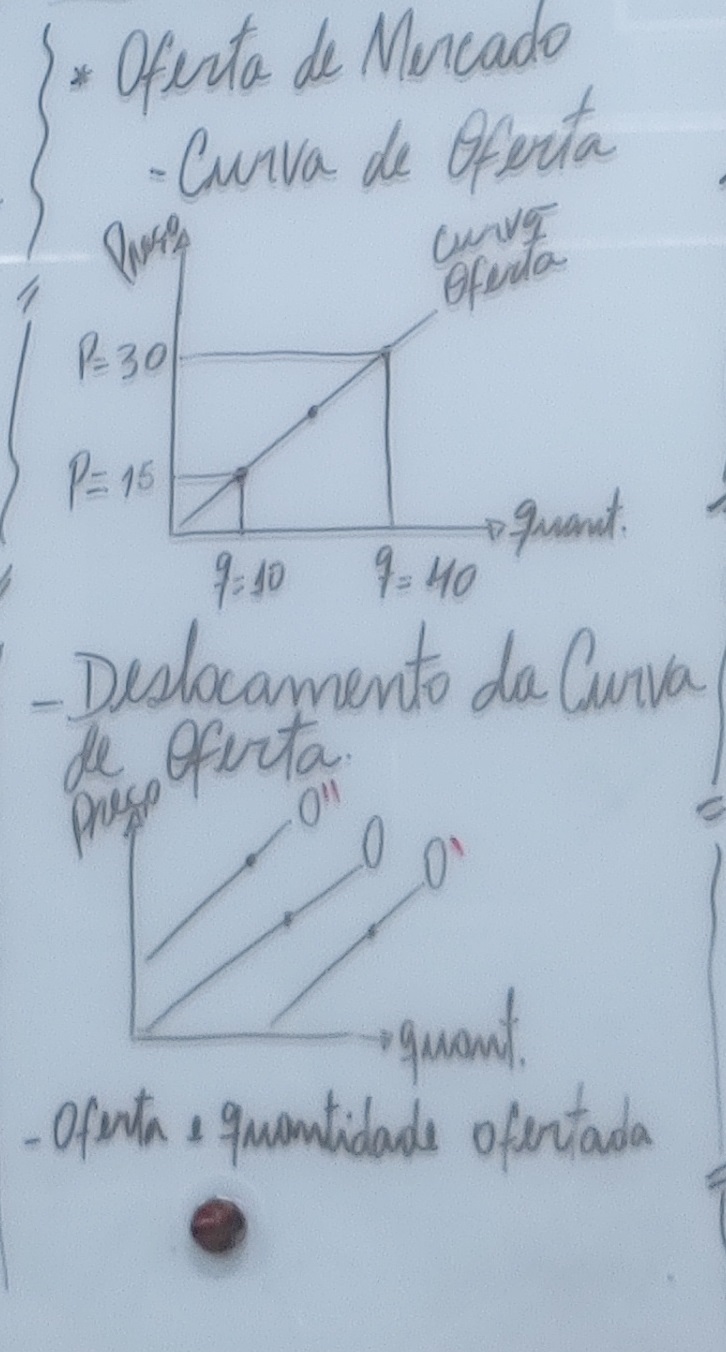 * Oferta de Mercado
- Curva de Oferta
Preço
Curva
Oferta
P=30
P=15
quant.
q=10 q=40
- Deslocamento da Curva
de Oferta.
Preço
O"
O
O'
quant.
- Oferta e quantidade ofertada